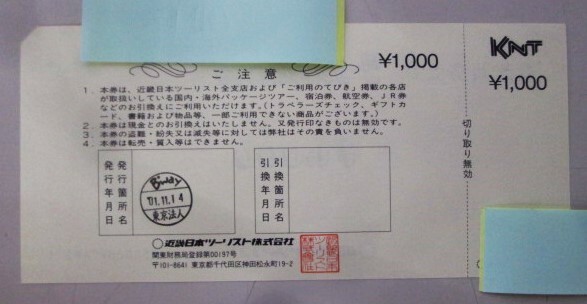 ¥1,000
KNT
¥1,000
ご注意
1. 本券は、近畿日本ツーリスト全支店および「ご利用のてびき」掲載の各店
が取扱いしている国内・海外パッケージツアー、宿泊券、航空券、JR券
などのお引換えにご利用いただけます。(トラベラーズチェック、ギフトカ
ード、書籍および物品等、一部ご利用できない商品がございます。)
2. 本券は現金とのお引換えはいたしません。又発行印なきものは無効です。
3. 本券の盗難・紛失又は滅失等に対しては弊社はその責を負いません。
4. 本券は転売・質入等はできません。
切り取り無効
発行箇所名
発行年月日
Buddy
'01.11.14
東京法人
引換箇所名
引換年月日
近畿日本ツーリスト株式会社
関東財務局登録第00197号
〒101-8641 東京都千代田区神田松永町19-2